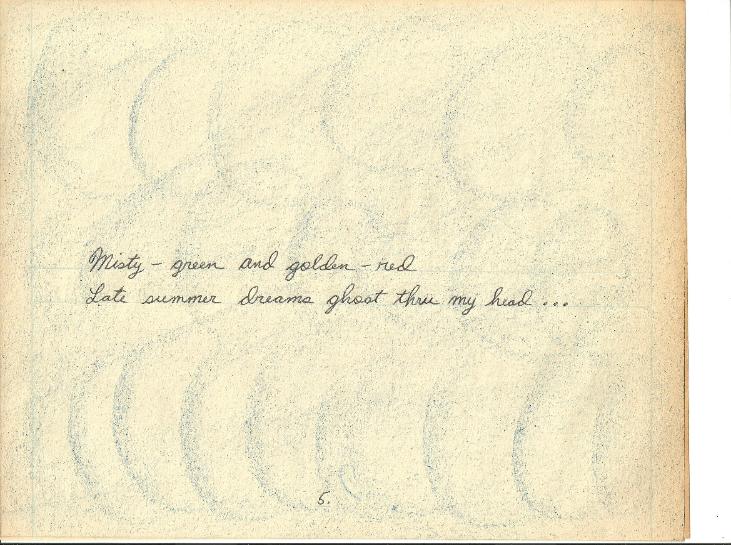 Misty - green and golden - red
Late summer dreams ghost thru my head ...
5.